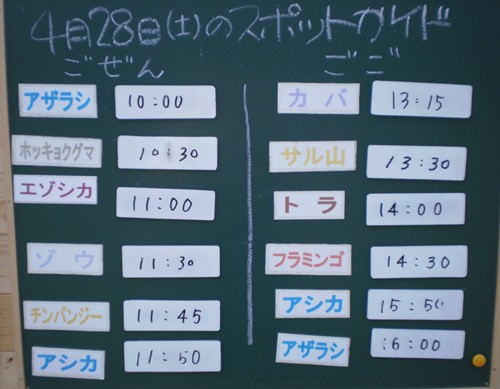 4月28日(土)のスポットガイド
ごぜん
アザラシ 10:00
ホッキョクグマ 10:30
エゾシカ 11:00
ゾウ 11:30
チンパンジー 11:45
アシカ 11:50
ごご
カバ 13:15
サル山 13:30
トラ 14:00
フラミンゴ 14:30
アシカ 15:50
アザラシ 16:00